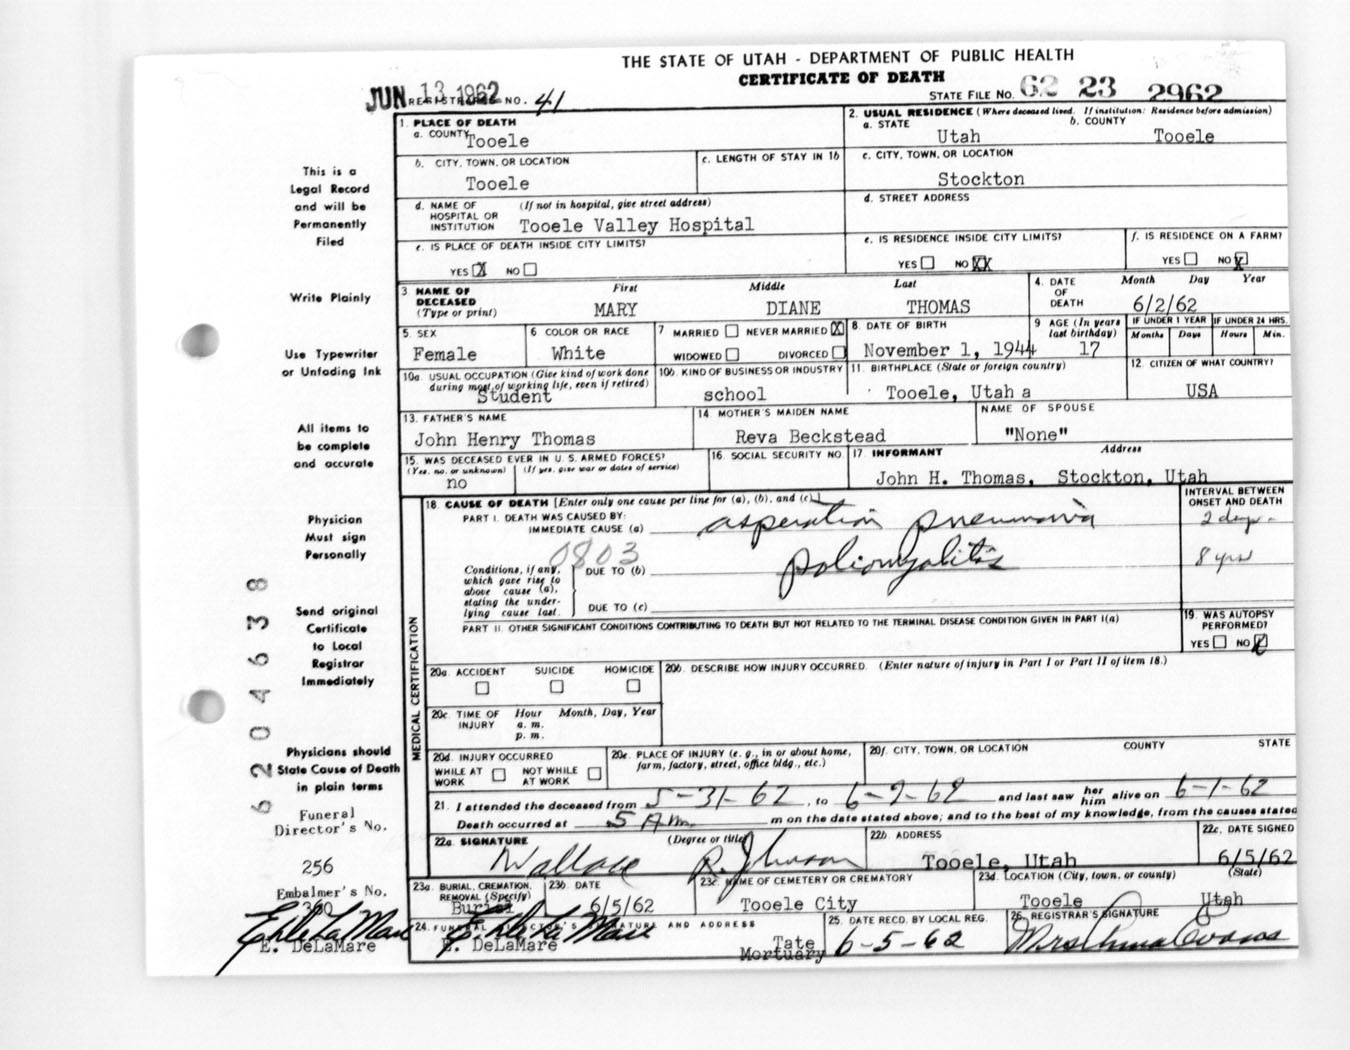 THE STATE OF UTAH - DEPARTMENT OF PUBLIC HEALTH
CERTIFICATE OF DEATH
JUN 13 1962 REGISTRARS NO. 41 STATE FILE NO. 62 23 2962
1. PLACE OF DEATH
a. COUNTY Tooele
2. USUAL RESIDENCE (Where deceased lived. If institution: Residence before admission)
a. STATE Utah b. COUNTY Tooele
b. CITY, TOWN, OR LOCATION Tooele
c. LENGTH OF STAY IN 1b
c. CITY, TOWN, OR LOCATION Stockton
d. NAME OF HOSPITAL OR INSTITUTION (If not in hospital, give street address) Tooele Valley Hospital
d. STREET ADDRESS
e. IS PLACE OF DEATH INSIDE CITY LIMITS?
YES X NO
e. IS RESIDENCE INSIDE CITY LIMITS?
YES NO XX
f. IS RESIDENCE ON A FARM?
YES NO X
3 NAME OF DECEASED (Type or print)
First Middle Last
MARY DIANE THOMAS
4. DATE OF DEATH Month Day Year
6/2/62
5. SEX Female
6 COLOR OR RACE White
7 MARRIED NEVER MARRIED X
WIDOWED DIVORCED
8. DATE OF BIRTH November 1, 1944
9 AGE (In years last birthday) 17
IF UNDER 1 YEAR Months Days
IF UNDER 24 HRS. Hours Min.
10a. USUAL OCCUPATION (Give kind of work done during most of working life, even if retired) Student
10b. KIND OF BUSINESS OR INDUSTRY school
11. BIRTHPLACE (State or foreign country) Tooele, Utah a
12. CITIZEN OF WHAT COUNTRY? USA
13. FATHER'S NAME John Henry Thomas
14. MOTHER'S MAIDEN NAME Reva Beckstead
NAME OF SPOUSE "None"
15. WAS DECEASED EVER IN U. S. ARMED FORCES?
(Yes, no, or unknown) (If yes, give war or dates of service)
no
16. SOCIAL SECURITY NO.
17. INFORMANT Address
John H. Thomas, Stockton, Utah
18. CAUSE OF DEATH [Enter only one cause per line for (a), (b), and (c).]
INTERVAL BETWEEN ONSET AND DEATH
PART I. DEATH WAS CAUSED BY:
IMMEDIATE CAUSE (a) asperation pneumonia 2 days
0803
Conditions, if any, which gave rise to above cause (a), stating the underlying cause last.
DUE TO (b) poliomyalitis 8 yrs
DUE TO (c)
PART II. OTHER SIGNIFICANT CONDITIONS CONTRIBUTING TO DEATH BUT NOT RELATED TO THE TERMINAL DISEASE CONDITION GIVEN IN PART I(a)
19. WAS AUTOPSY PERFORMED?
YES NO
MEDICAL CERTIFICATION
20a. ACCIDENT SUICIDE HOMICIDE
20b. DESCRIBE HOW INJURY OCCURRED. (Enter nature of injury in Part I or Part II of item 18.)
20c. TIME OF INJURY Hour Month, Day, Year
a. m.
p. m.
20d. INJURY OCCURRED
WHILE AT WORK NOT WHILE AT WORK
20e. PLACE OF INJURY (e. g., in or about home, farm, factory, street, office bldg., etc.)
20f. CITY, TOWN, OR LOCATION COUNTY STATE
21. I attended the deceased from 5-31-62, to 6-2-62 and last saw her him alive on 6-1-62
Death occurred at 5 A.m. m on the date stated above; and to the best of my knowledge, from the causes stated
22a. SIGNATURE (Degree or title) Wallace R. Johnson
22b. ADDRESS Tooele, Utah
22c. DATE SIGNED 6/5/62
23a. BURIAL, CREMATION, REMOVAL (Specify) Burial
23b. DATE 6/5/62
23c. NAME OF CEMETERY OR CREMATORY Tooele City
23d. LOCATION (City, town, or county) (State)
Tooele Utah
24. FUNERAL DIRECTOR'S SIGNATURE AND ADDRESS
E. DeLaMare
Tate Mortuary
25. DATE RECD. BY LOCAL REG. 6-5-62
26. REGISTRAR'S SIGNATURE Mrs Evans
This is a
Legal Record
and will be
Permanently
Filed
Write Plainly
Use Typewriter
or Unfading Ink
All items to
be complete
and accurate
Physician
Must sign
Personally
Send original
Certificate
to Local
Registrar
Immediately
Physicians should
State Cause of Death
in plain terms
Funeral
Director's No.
256
Embalmer's No.
E. DeLaMare
62 04638